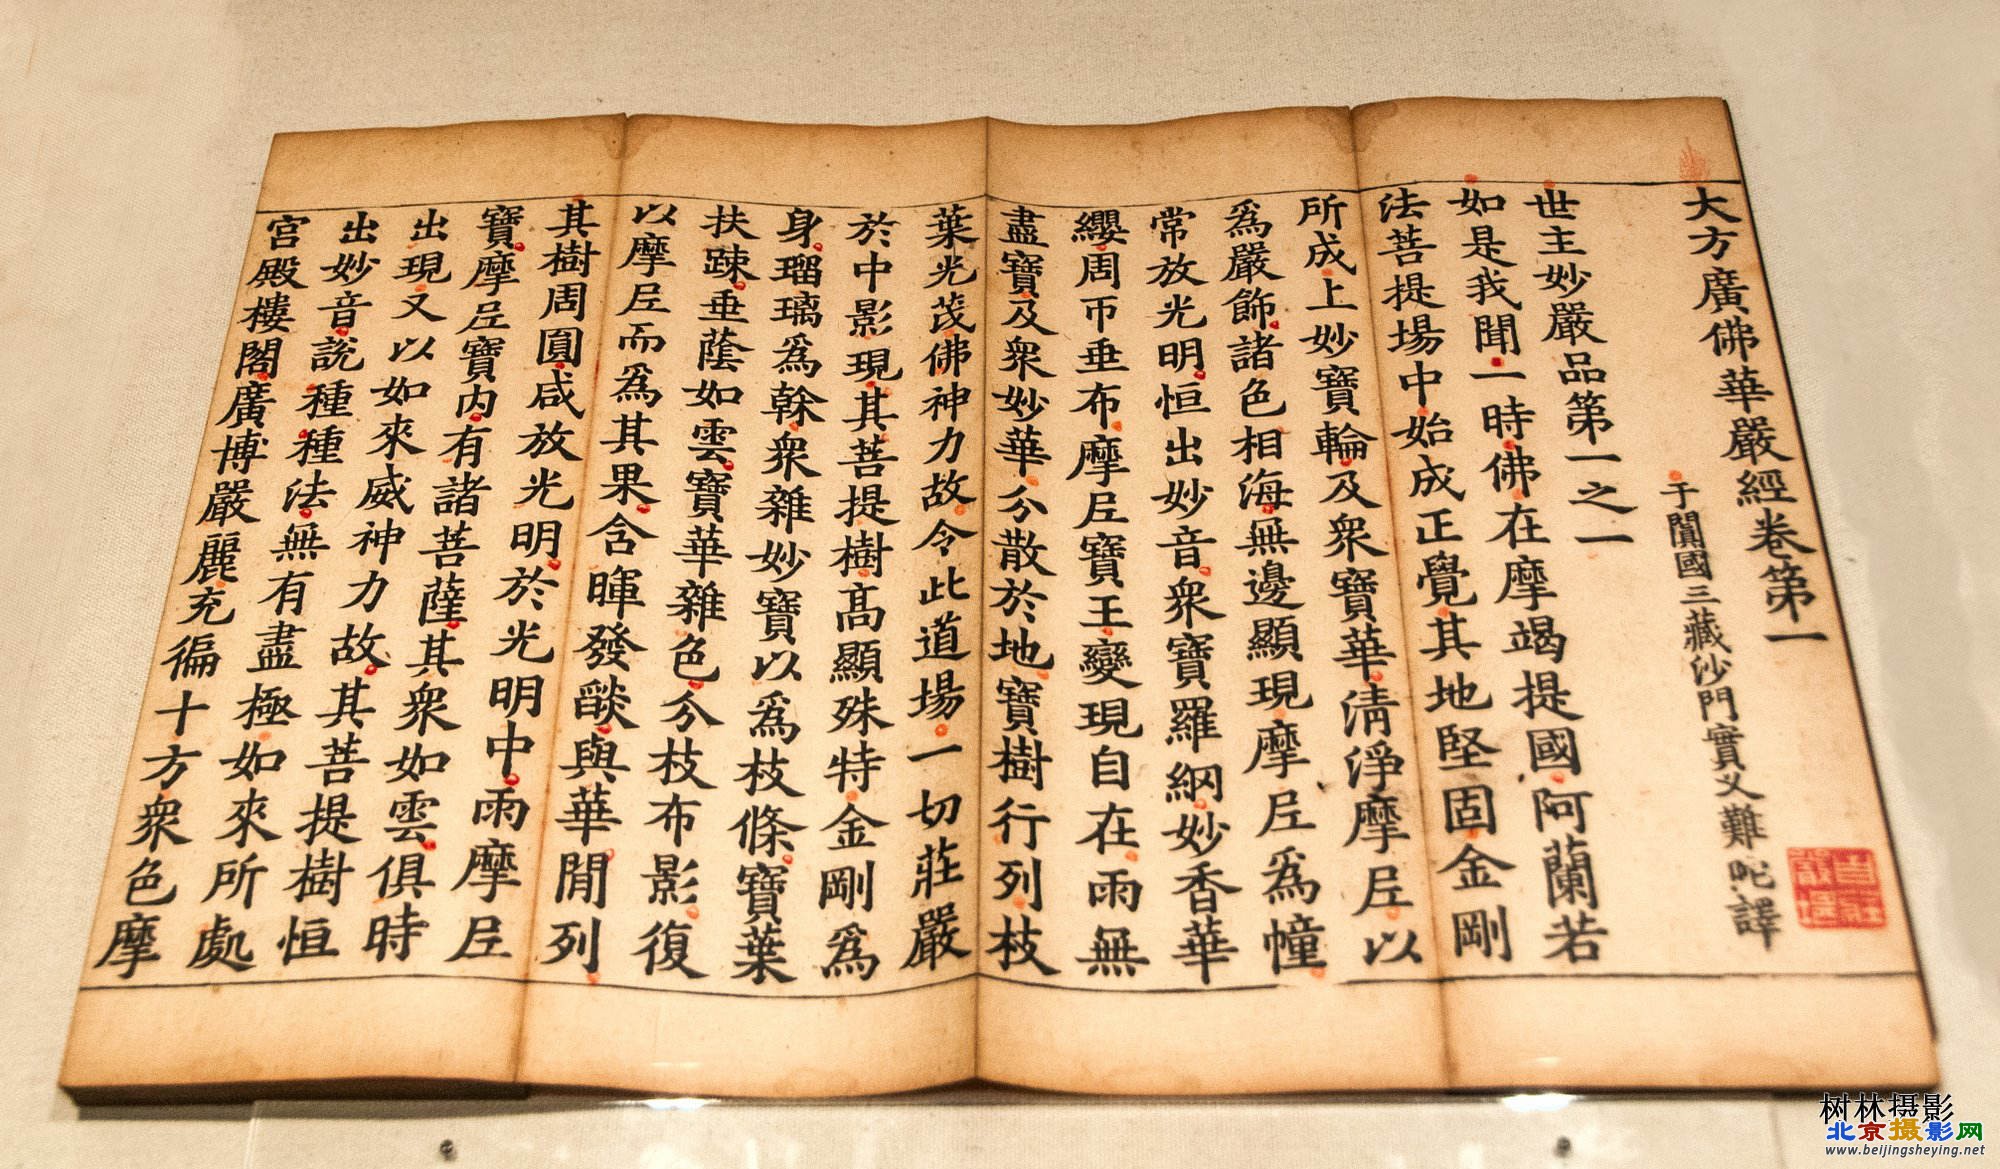 大方廣佛華嚴經卷第一
于闐國三藏沙門實叉難陀譯
世主妙嚴品第一之一
如是我聞一時佛在摩竭提國阿蘭若
法菩提場中始成正覺其地堅固金剛
所成上妙寶輪及眾寶華清淨摩尼以
爲嚴飾諸色相海無邊顯現摩尼爲幢
常放光明恒出妙音眾寶羅網妙香華
纓周帀垂布摩尼寶王變現自在雨無
盡寶及眾妙華分散於地寶樹行列枝
葉光茂佛神力故令此道場一切莊嚴
於中影現其菩提樹高顯殊特金剛爲
身瑠璃爲榦眾雜妙寶以爲枝條寶葉
扶踈垂蔭如雲寶華雜色分枝布影復
以摩尼而爲其果含暉發燄與華閒列
其樹周圓咸放光明於光明中雨摩尼
寶摩尼寶内有諸菩薩其眾如雲俱時
出現又以如來威神力故其菩提樹恒
出妙音說種種法無有盡極如來所處
宮殿樓閣廣博嚴麗充徧十方眾色摩
树林摄影
北京摄影网
www.beijingsheying.net